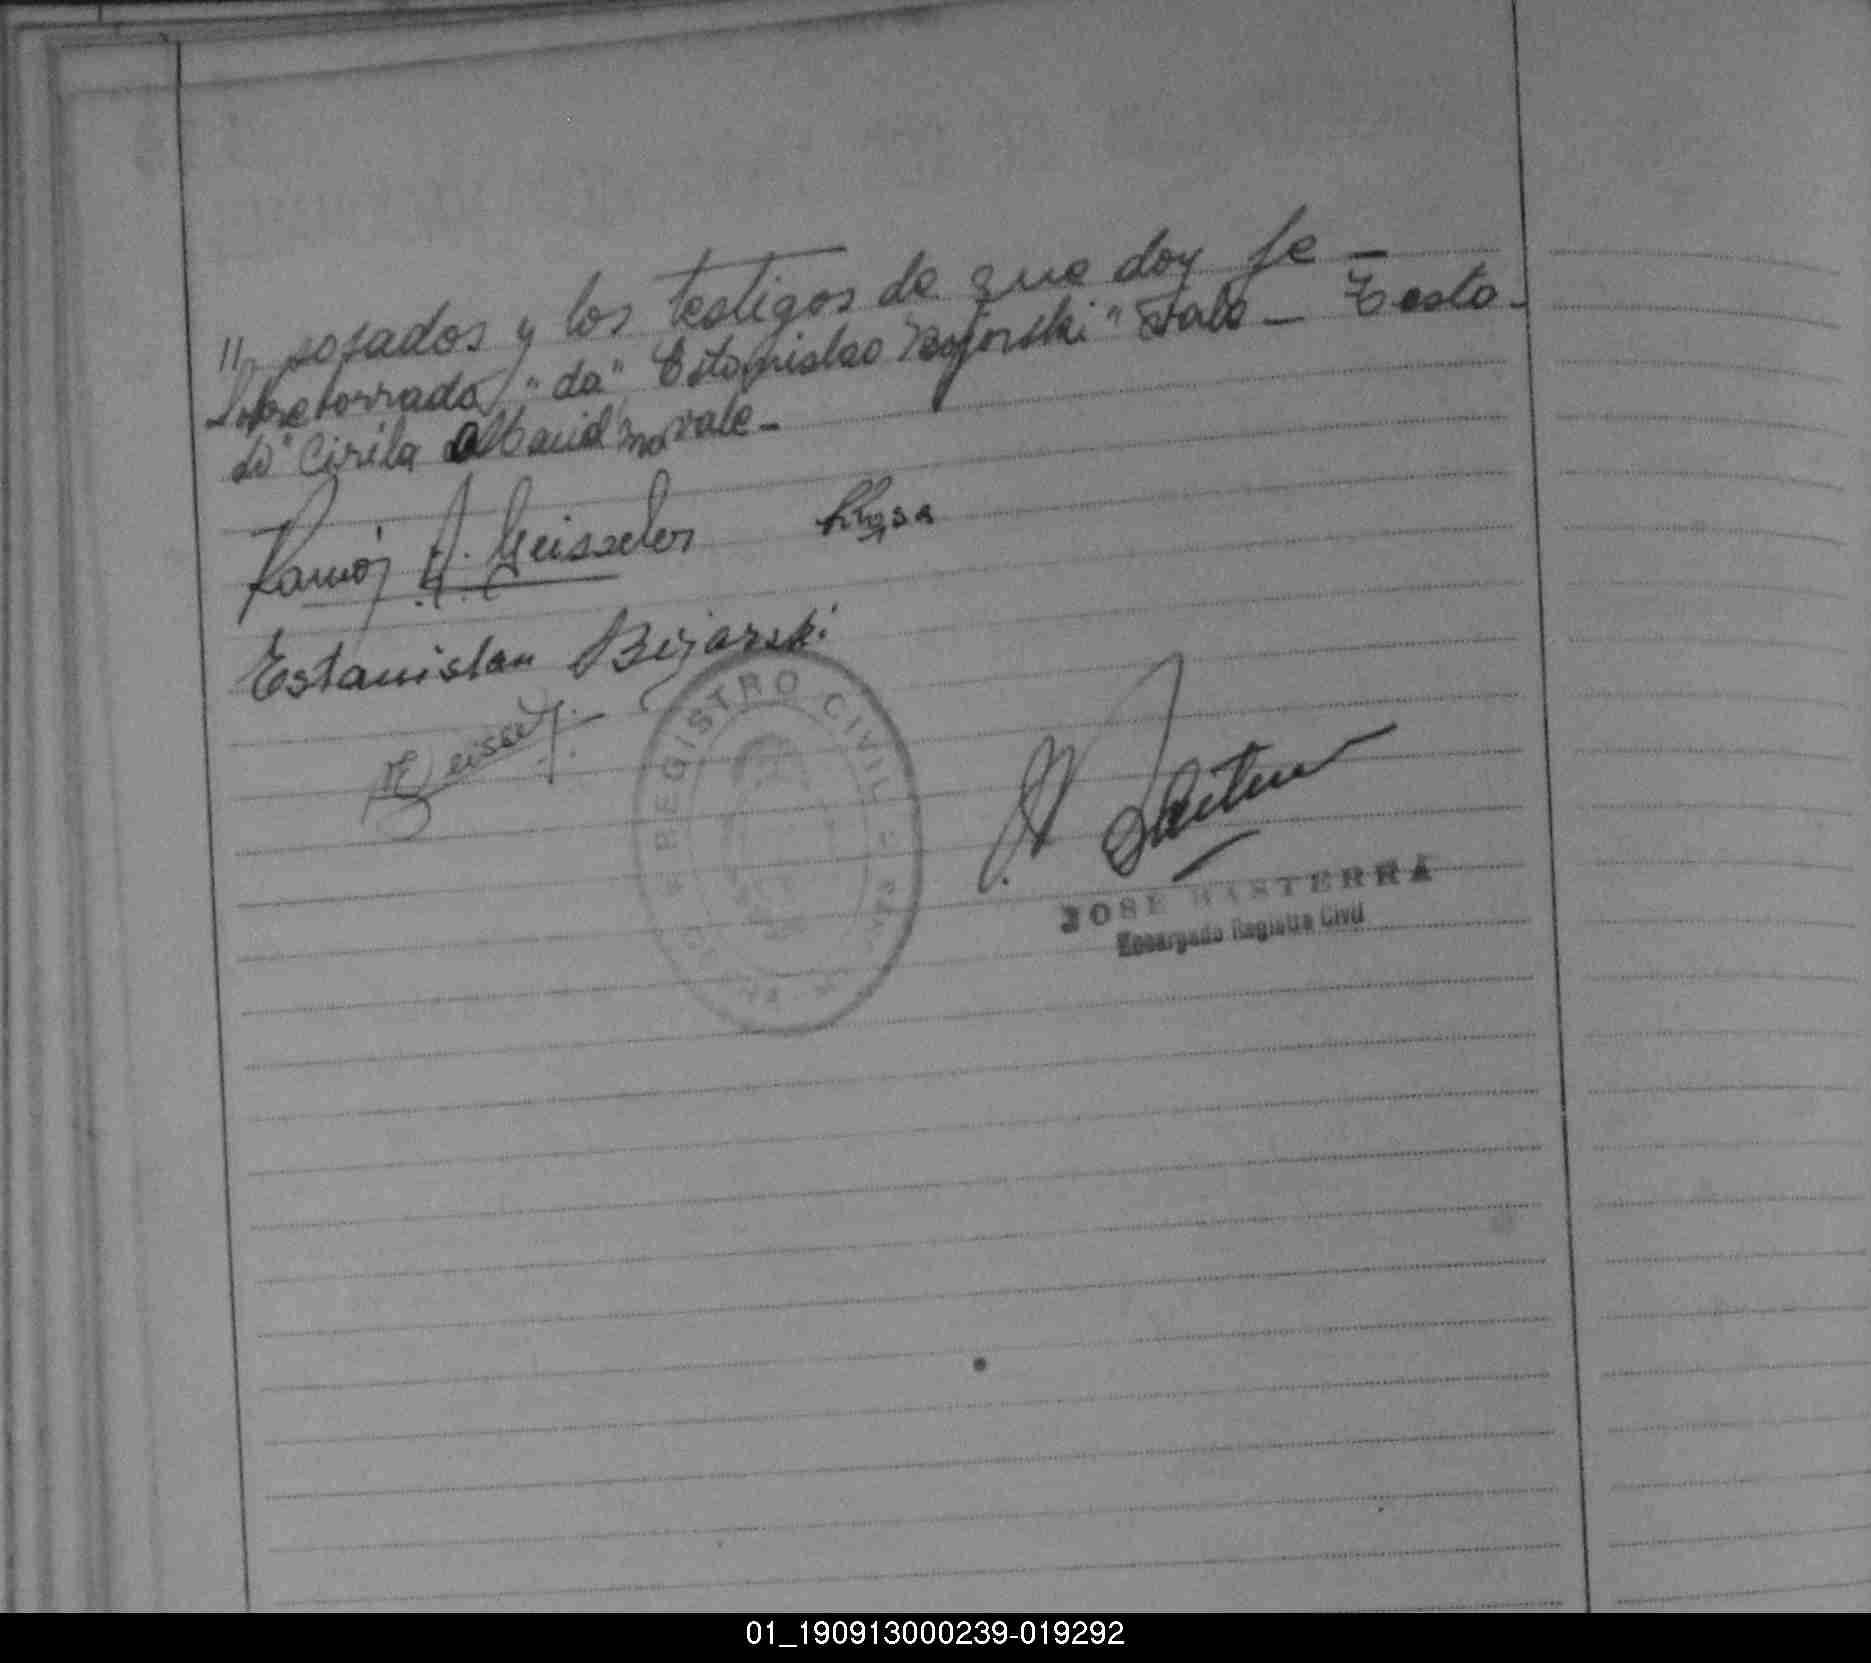 // posados y los testigos de que doy fe —
Sobreborrado "da" Estanislao Bojorski" Vale — Testa-
do" Cirila no vale —
Ramón A. Geisseler
Estanislau Bejarski
REGISTRO CIVIL
JOSE BASTERRA
Encargado Registro Civil
01_190913000239-019292